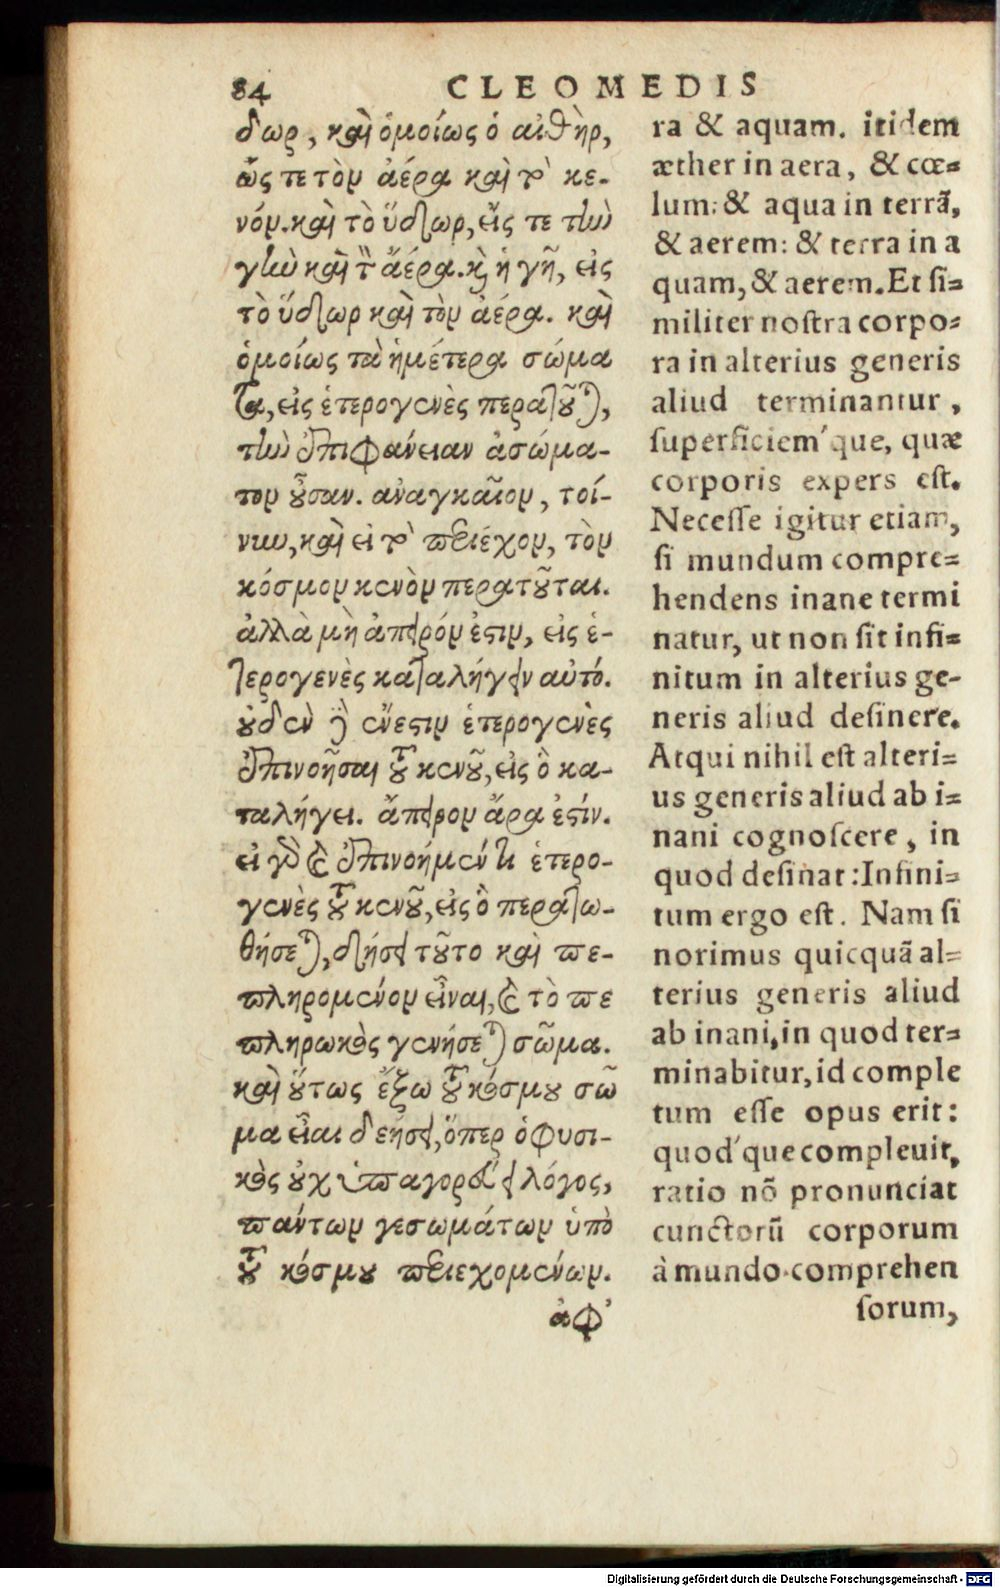 84 CLEOMEDIS
δωρ, καὶ ὁμοίως ὁ αἰθὴρ,
ὥς τε τὸν ἀέρα καὶ τὸ κε-
νόν. καὶ τὸ ὕδωρ, εἴς τε τὴν
γῆν καὶ τὸν ἀέρα. καὶ ἡ γῆ, εἰς
τὸ ὕδωρ καὶ τὸν ἀέρα. καὶ
ὁμοίως τὰ ἡμέτερα σώμα
τα, εἰς ἑτερογενὲς περατοῦται,
τὴν ἐπιφάνειαν ἀσώμα-
τον οὖσαν. ἀναγκαῖον, τοί-
νυν, καὶ εἰ τὸ περιέχον, τὸν
κόσμον κενὸν περατοῦται.
ἀλλὰ μὴ ἄπειρόν ἐστιν, εἰς ἑ-
τερογενὲς καταλήγειν αὐτό.
οὐδὲν γὰρ ἔνεστιν ἑτερογενὲς
ἐπινοῆσαι τοῦ κενοῦ, εἰς ὃ κα-
ταλήγει. ἄπειρον ἄρα ἐστίν.
εἰ γὰρ καὶ ἐπινοήμεν τι ἑτερο-
γενὲς τοῦ κενοῦ, εἰς ὃ περατω-
θήσεται, δεήσει τοῦτο καὶ πε-
πληρομένον εἶναι, καὶ τὸ πε
πληρωκὸς γενήσεται σῶμα.
καὶ οὕτως ἔξω τοῦ κόσμου σῶ
μα εἶναι δεήσει, ὅπερ ὁ φυσι-
κὸς οὐχ ὑπαγορεύει λόγος,
πάντων γε σωμάτων ὑπὸ
τοῦ κόσμου περιεχομένων.
ἀφ'
ra & aquam. itidem
æther in aera, & cœ=
lum: & aqua in terrã,
& aerem: & terra in a
quam, & aerem. Et ſi=
militer noſtra corpo=
ra in alterius generis
aliud terminantur,
ſuperficiem'que, quæ
corporis expers eſt.
Neceſſe igitur etiam,
ſi mundum compre=
hendens inane termi
natur, ut non ſit infi=
nitum in alterius ge-
neris aliud deſinere.
Atqui nihil eſt alteri=
us generis aliud ab i=
nani cognoſcere, in
quod deſinat: Infini=
tum ergo eſt. Nam ſi
norimus quicquã al=
terius generis aliud
ab inani, in quod ter=
minabitur, id comple
tum eſſe opus erit:
quod'que compleuit,
ratio nõ pronunciat
cunctorũ corporum
à mundo comprehen
ſorum,
Digitalisierung gefördert durch die Deutsche Forschungsgemeinschaft - DFG